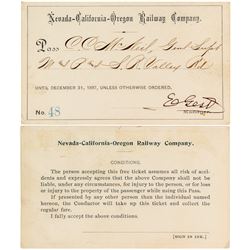 Nevada-California-Oregon Railway Company.
Pass C. C. McNeil, Genl Supt
N & P & S. P. Valley Rd
UNTIL DECEMBER 31, 1897, UNLESS OTHERWISE ORDERED.
No. 48
Manager.
Nevada-California-Oregon Railway Company.
CONDITIONS.
The person accepting this free ticket assumes all risk of accidents and expressly agrees that the above Company shall not be liable, under any circumstances, for injury to the person, or for loss or injury to the property of the passenger while using this pass.
If presented by any other person than the individual named hereon, the Conductor will take up this ticket and collect the regular fare.
I fully accept the above conditions.
[SIGN IN INK.]